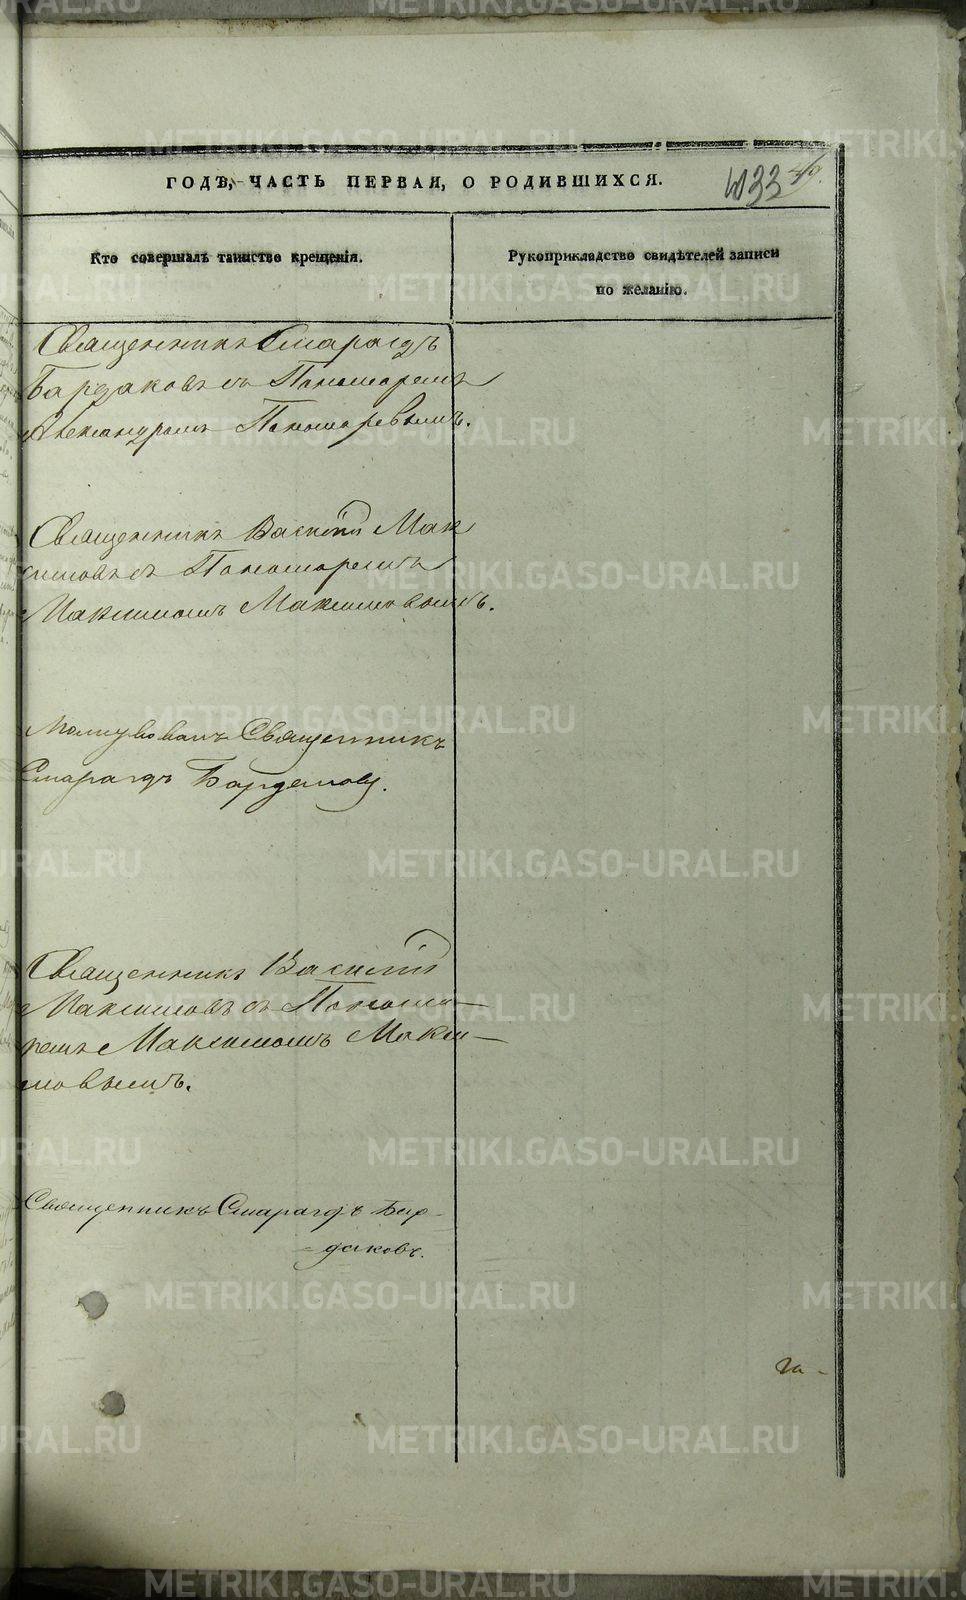 ГОДѢ, ЧАСТЬ ПЕРВАЯ, О РОДИВШИХСЯ.
433
Кто совершалъ таинство крещенія.
Рукоприкладство свидѣтелей записи
по желанію.
Священникъ Смарагдъ
Бардаковъ съ Пономаремъ
Александромъ Пономаревымъ.
Священникъ Василій Мак
симовъ съ Пономаремъ
Максимомъ Максимовымъ.
Молитвовалъ Священникъ
Смарагдъ Бардаковъ.
Священникъ Василій
Максимовъ съ Понома-
ремъ Максимомъ Макси-
мовымъ.
Священникъ Смарагдъ Бар-
даковъ.
METRIKI.GASO-URAL.RU